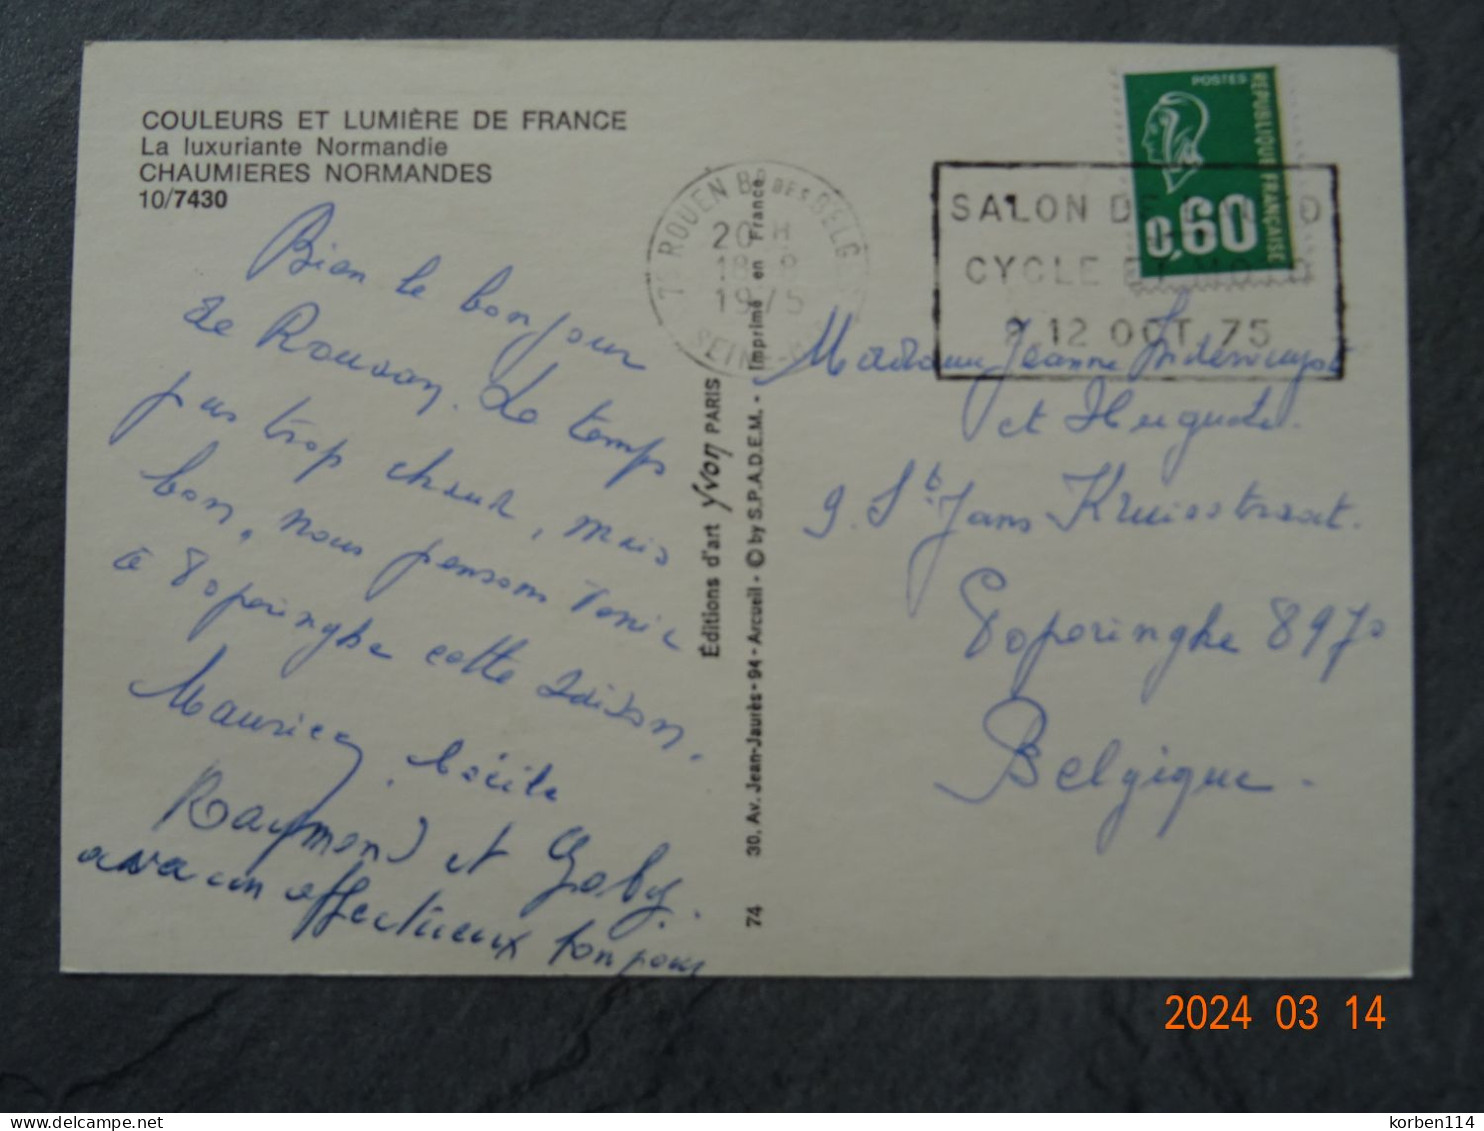 COULEURS ET LUMIÈRE DE FRANCE
La luxuriante Normandie
CHAUMIERES NORMANDES
10/7430
Bien le bonjour
de Rouson. Le temps
pas trop chaud, mais
bon, nous pensons venir
à Poperinghe cette saison.
Maurice, Cécile
Raymond et Gaby.
avec un affectueux bonjour
Éditions d'art Yvon PARIS
30, Av. Jean-Jaurès - 94 - Arcueil - © by S.P.A.D.E.M. - Imprimé en France
74
ROUEN Bd DES BELG
20 H
18
1975
SEINE
POSTES
RÉPUBLIQUE FRANÇAISE
0,60
SALON D
CYCLE
12 OCT 75
Madame Jeanne
et Huguette.
9. St Jans Kruisstraat.
Poperinghe 8970
Belgique.
2024 03 14
delcampe.net
korben114